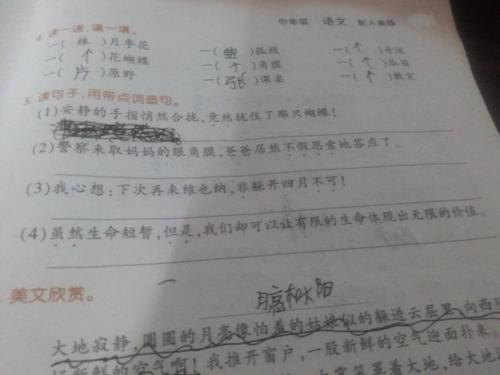 四年级 语文 配人教版
4. 读一读,填一填。
一( 株 )月季花 一( )弧线 一( 个 )奇迹
一( 个 )花蝴蝶 一( 个 )角膜 一( 个 )瓜苗
一( 片 )原野 一( 张 )课桌 一( 个 )教室
5. 读句子,用带点词造句。
(1)安静的手指悄然合拢,竟然拢住了那只蝴蝶!
(2)警察来取妈妈的眼角膜,爸爸居然不假思索地答应了。
(3)我心想:下次再来维也纳,非躲开四月不可!
(4)虽然生命短暂,但是,我们却可以让有限的生命体现出无限的价值。
美文欣赏。
大地寂静,圆圆的月亮像怕羞的姑娘似的躲进云层里,向西
新鲜的空气啊!我推开窗户,一股新鲜的空气迎面扑来。
笼罩着大地,给大地